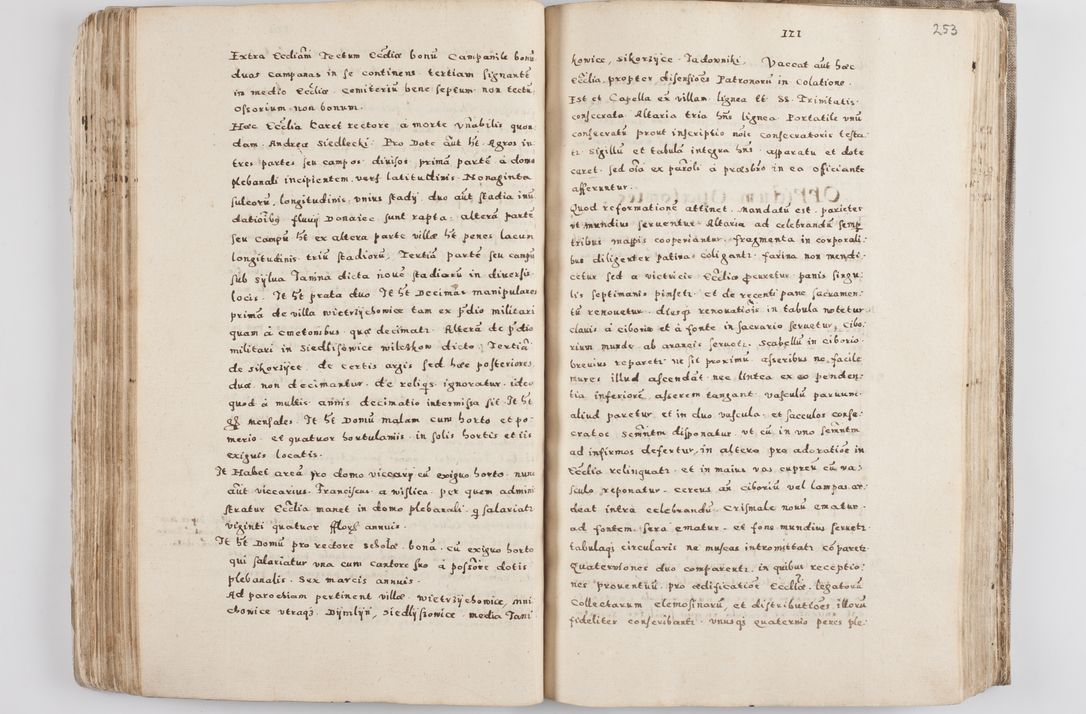 Extra Ecclīam Tectum Ecclīæ bonū Campanile bonū
duas campanas in se continens tertiam signantē
in medio Ecclīæ. Cæmiteriū bene septum non tectū
Ossorium non bonum.
Hæc Ecclīa Caret rectore à morte Vn̄abilis quon
dam Andreæ Siedlecki. Pro Dote aūt h̄t Agros in
tres partes seu campos diuisos primā partē à domo
Plebanali incipientem vers9 latitudinis Nonaginta
sulcorū, longitudinis vnius stadij duo aūt stadia inū
dationibg fluuij Donaiec sunt rapta: alterā partē
seu Campū h̄t ex altera parte villæ h̄t penes lacum
longitudinis triū stadiorū, Tertiā partē seu campū
sub sylua Jamna dicta nouē stadiarū in diuersis
locis. It h̄t prata duo It h̄t Decimas manipulares
primā de villa wietrzÿchowice tam ex p̄dio militari
quam à Cmetonibus quæ decimatr. Alterā de p̄dio
militari in Siedlisowice wilczkow dicto. Tertiā
de sikorzÿce. de certis agris sed hæ posteriores
duæ non decimantur. de reliqs ignoratur. ideo
quod à multis annis decimatio intermissa sit It h̄t
mensales. It h̄t Domū malam cum horto et po-
merio. et quatuor hortulanis in solis hortis et iis
exiguis locatis.
It Habet areā pro domo viccarij cū exiguo horto. nunc
aūt viccarius Franciscus a wislica per quem admini
stratur Ecclīa manet in domo plebanali. q salariatr
viginti quatuor flor annuis.
It h̄t Domū pro rectore scholæ bonā. cū exiguo horto
qui salariatur vna cum cantore suo à possōre dotis
plebanalis. Sex marcis annuis.
Ad parochiam pertinent villæ. wietrzÿchowice, mni
chowice vtraqz. Dÿmlÿn, siedlyssowice. media Jani

253
III
kowice, sikorzÿce. Jadowniki, Vaccat aūt hæc
Ecclīa, propter disensiōes Patronorū in Colatione.
Est et Capella ex villam lignea tt SS. Trinitatis
consecrata Altaria tria hn̄s lignea. Portatile vnū
consecratū prout inscriptio noīe consecratoris testa
tr sigillū et tabulā integra hn̄s. apparatu et dote
caret. sed oīa ex paroli à præsbrō in ea officiante
afferuntur.
Quod reformationē attinet. Mandatū est. parietes
vt mundius seruentur. Altaria ad celebrandū semp
tribus mappis cooperiantur. fragmenta in corporali-
bus diligenter patina coligantr. farina non mendi-
cetur sed a victricis Ecclīæ procuretur. panis singu
lis septimanis pinsetr. et de recenti pane sacramen-
tū renouetur. diesq renouatiōis in tabula notetur
clauis à ciborio et à fonte in sacrario seruetur, cibo-
rium munde ab araneis seruetr. scabellū in ciborio
breuius reparetr ne sit proximū asseribus ne facile
mures illud ascendāt nec lintea ex eo penden-
tia inferiorē asserem tangant. vasculū paruum
aliud paretur. et in duo vascula. et sacculos conse-
cratoe Semn̄tm disponatur. vt cū in vno Semn̄tm
ad infirmos defertur, in altero pro adoratiōe in
Ecclīa relinquatr. et in maius vas cupreū cū va-
sculo reponatur. Cereus an̄ ciboriū vel lampas ar-
deat intra celebrandū. Crismale nouū ematur.
ad fontem. sera ematur. et fons mundius seruetr
tabulaqz circularis ne muscas intromittatr cōparetr
quaterniones duo comparentr. in quibus receptio-
nes prouentuū. pro ædificatiōe Ecclīæ. legatorū
Collectarum elemosinarū, et distributiōes illorū
fideliter conscribantr. vnusqz quaternio penes ple-